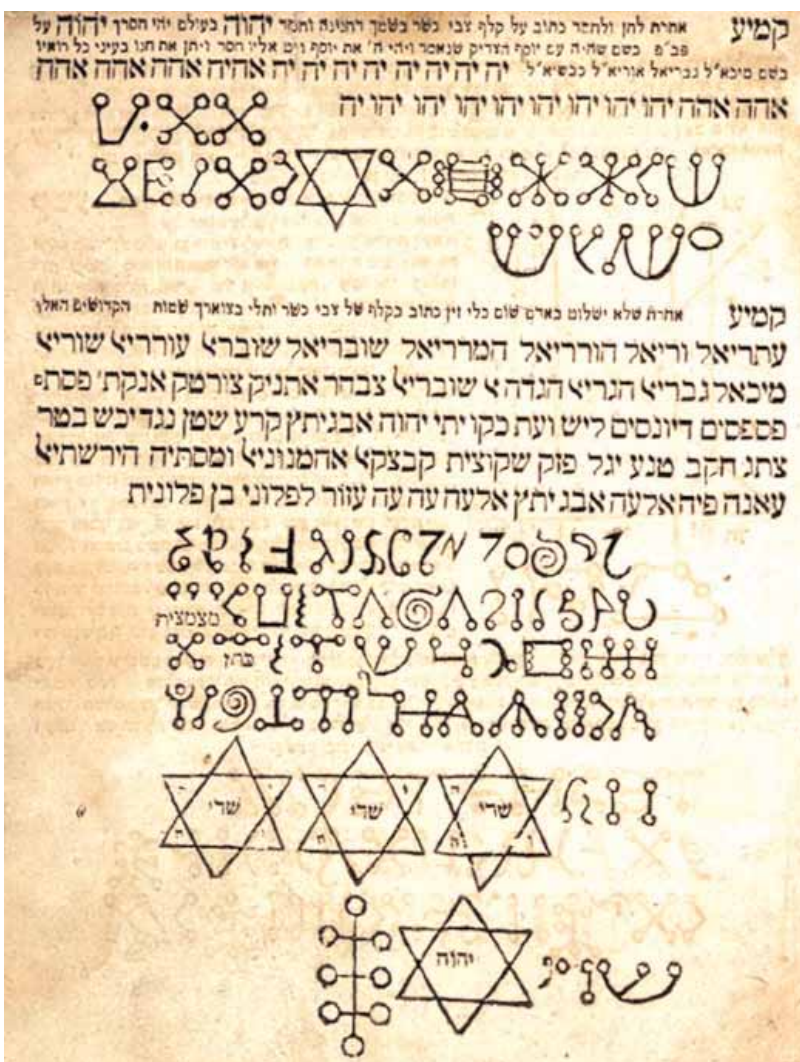 קמיע אחרת לחן ולחסד כתוב על קלף צבי כשר בשמך דחנינה וחסד יהוה בעולם יהי חסדך יהוה על
פב"פ כשם שהיה עם יוסף הצדיק שנאמר ויהי ה' את יוסף ויט אליו חסד ויתן את חנו בעיני כל רואיו
בשם מיכא"ל גבריאל אוריא"ל כבשיא"ל יה יה יה יה יה יה יה יה אהיה אהה אהה אהה אהה
אהה אהה יהו יהו יהו יהו יהו יהו יהו יהו יה
קמיע אחרת שלא ישלוט באדם שום כלי זין כתוב בקלף של צבי כשר ותלי בצוארך שמות הקדושים האלו
עתריאל וריאל הורריאל המרריאל שובריאל שובראל עורריאל שוריאל
מיכאל גבריאל הגריאל הגדה אל שובריאל צבחר אתניק צורטק אנקת' פסתם
פספסים דיונסים ליש ועת כקו יתי יהוה אבגיתץ קרע שטן נגדיכש בטר
צתג חקב טנע יגל פזק שקוצית קבצקאל אהמנוניאל ומסתיה הירשתיאל
עאנה פיה אלעה אבג יתץ אלעה עה עה עזור לפלוני בן פלונית
מצמצית
כתן
שדי שדי שדי
יהוה